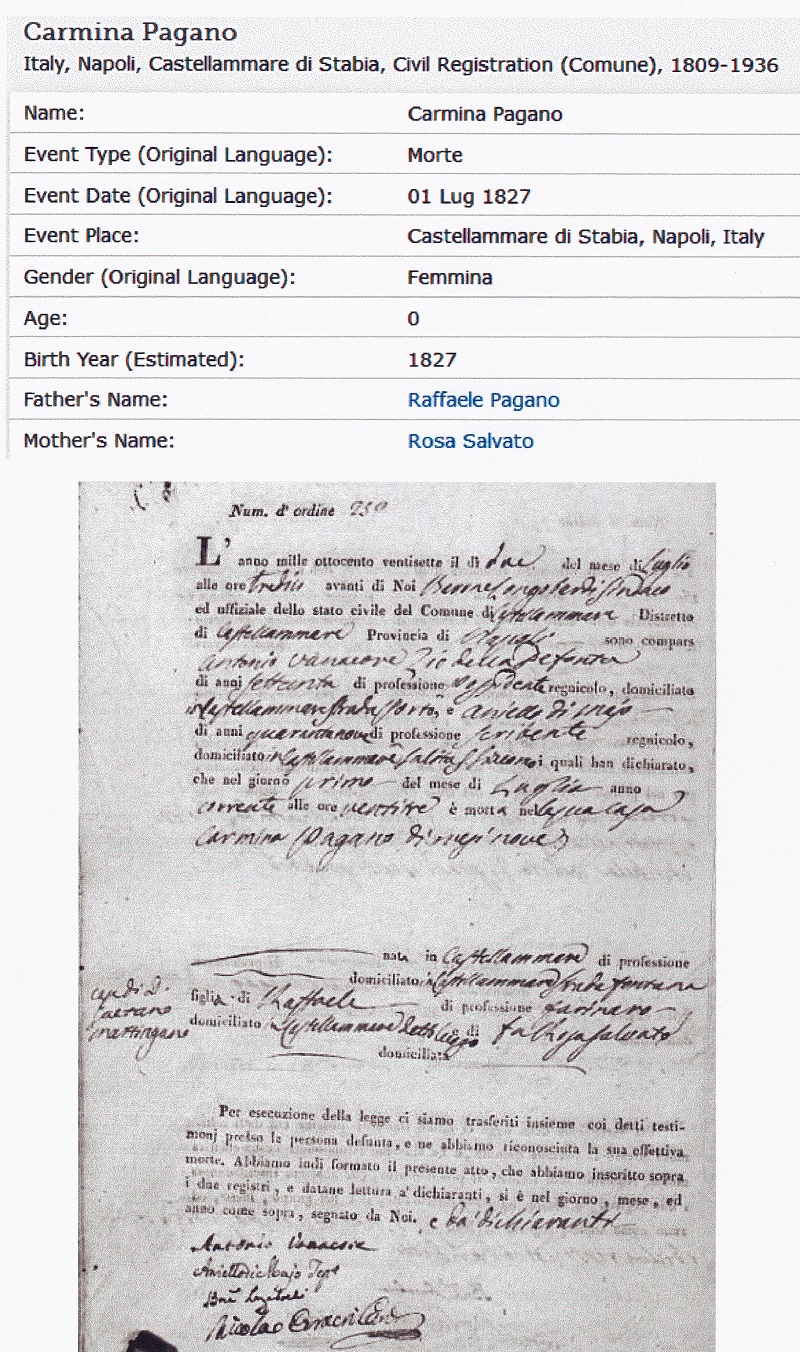 Carmina Pagano
Italy, Napoli, Castellammare di Stabia, Civil Registration (Comune), 1809-1936
Name: Carmina Pagano
Event Type (Original Language): Morte
Event Date (Original Language): 01 Lug 1827
Event Place: Castellammare di Stabia, Napoli, Italy
Gender (Original Language): Femmina
Age: 0
Birth Year (Estimated): 1827
Father's Name: Raffaele Pagano
Mother's Name: Rosa Salvato
Num. d' ordine 250
L' anno mille ottocento ventisette il dì due del mese di Luglio
alle ore tredici avanti di Noi Sindaco
ed uffiziale dello stato civile del Comune di Castellammare Distretto
di Castellammare Provincia di Napoli sono comparsi
Antonio Vanacore Zio della Defonta
di anni settanta di professione regnicolo, domiciliato
in Castellammare strada Porto, e Aniello di Majo
di anni quarantanove di professione scribente regnicolo,
domiciliato in Castellammare i quali han dichiarato,
che nel giorno primo del mese di Luglio anno
corrente alle ore ventitre è morta nella sua casa
Carmina Pagano di mesi nove
nata in Castellammare di professione
domiciliato in Castellammare strada fontana
figlia di Raffaele di professione farinaro
domiciliato in Castellammare e di fu Rosa Salvato
domiciliata
Gaetano
Martingano
Per esecuzione della legge ci siamo trasferiti insieme coi detti testi-
monj presso la persona defunta, e ne abbiamo riconosciuta la sua effettiva
morte. Abbiamo indi formato il presente atto, che abbiamo inscritto sopra
i due registri, e datane lettura a' dichiaranti, si è nel giorno, mese, ed
anno come sopra, segnato da Noi. e da' dichiaranti
Antonio Vanacore
Aniello di Majo
Nicola